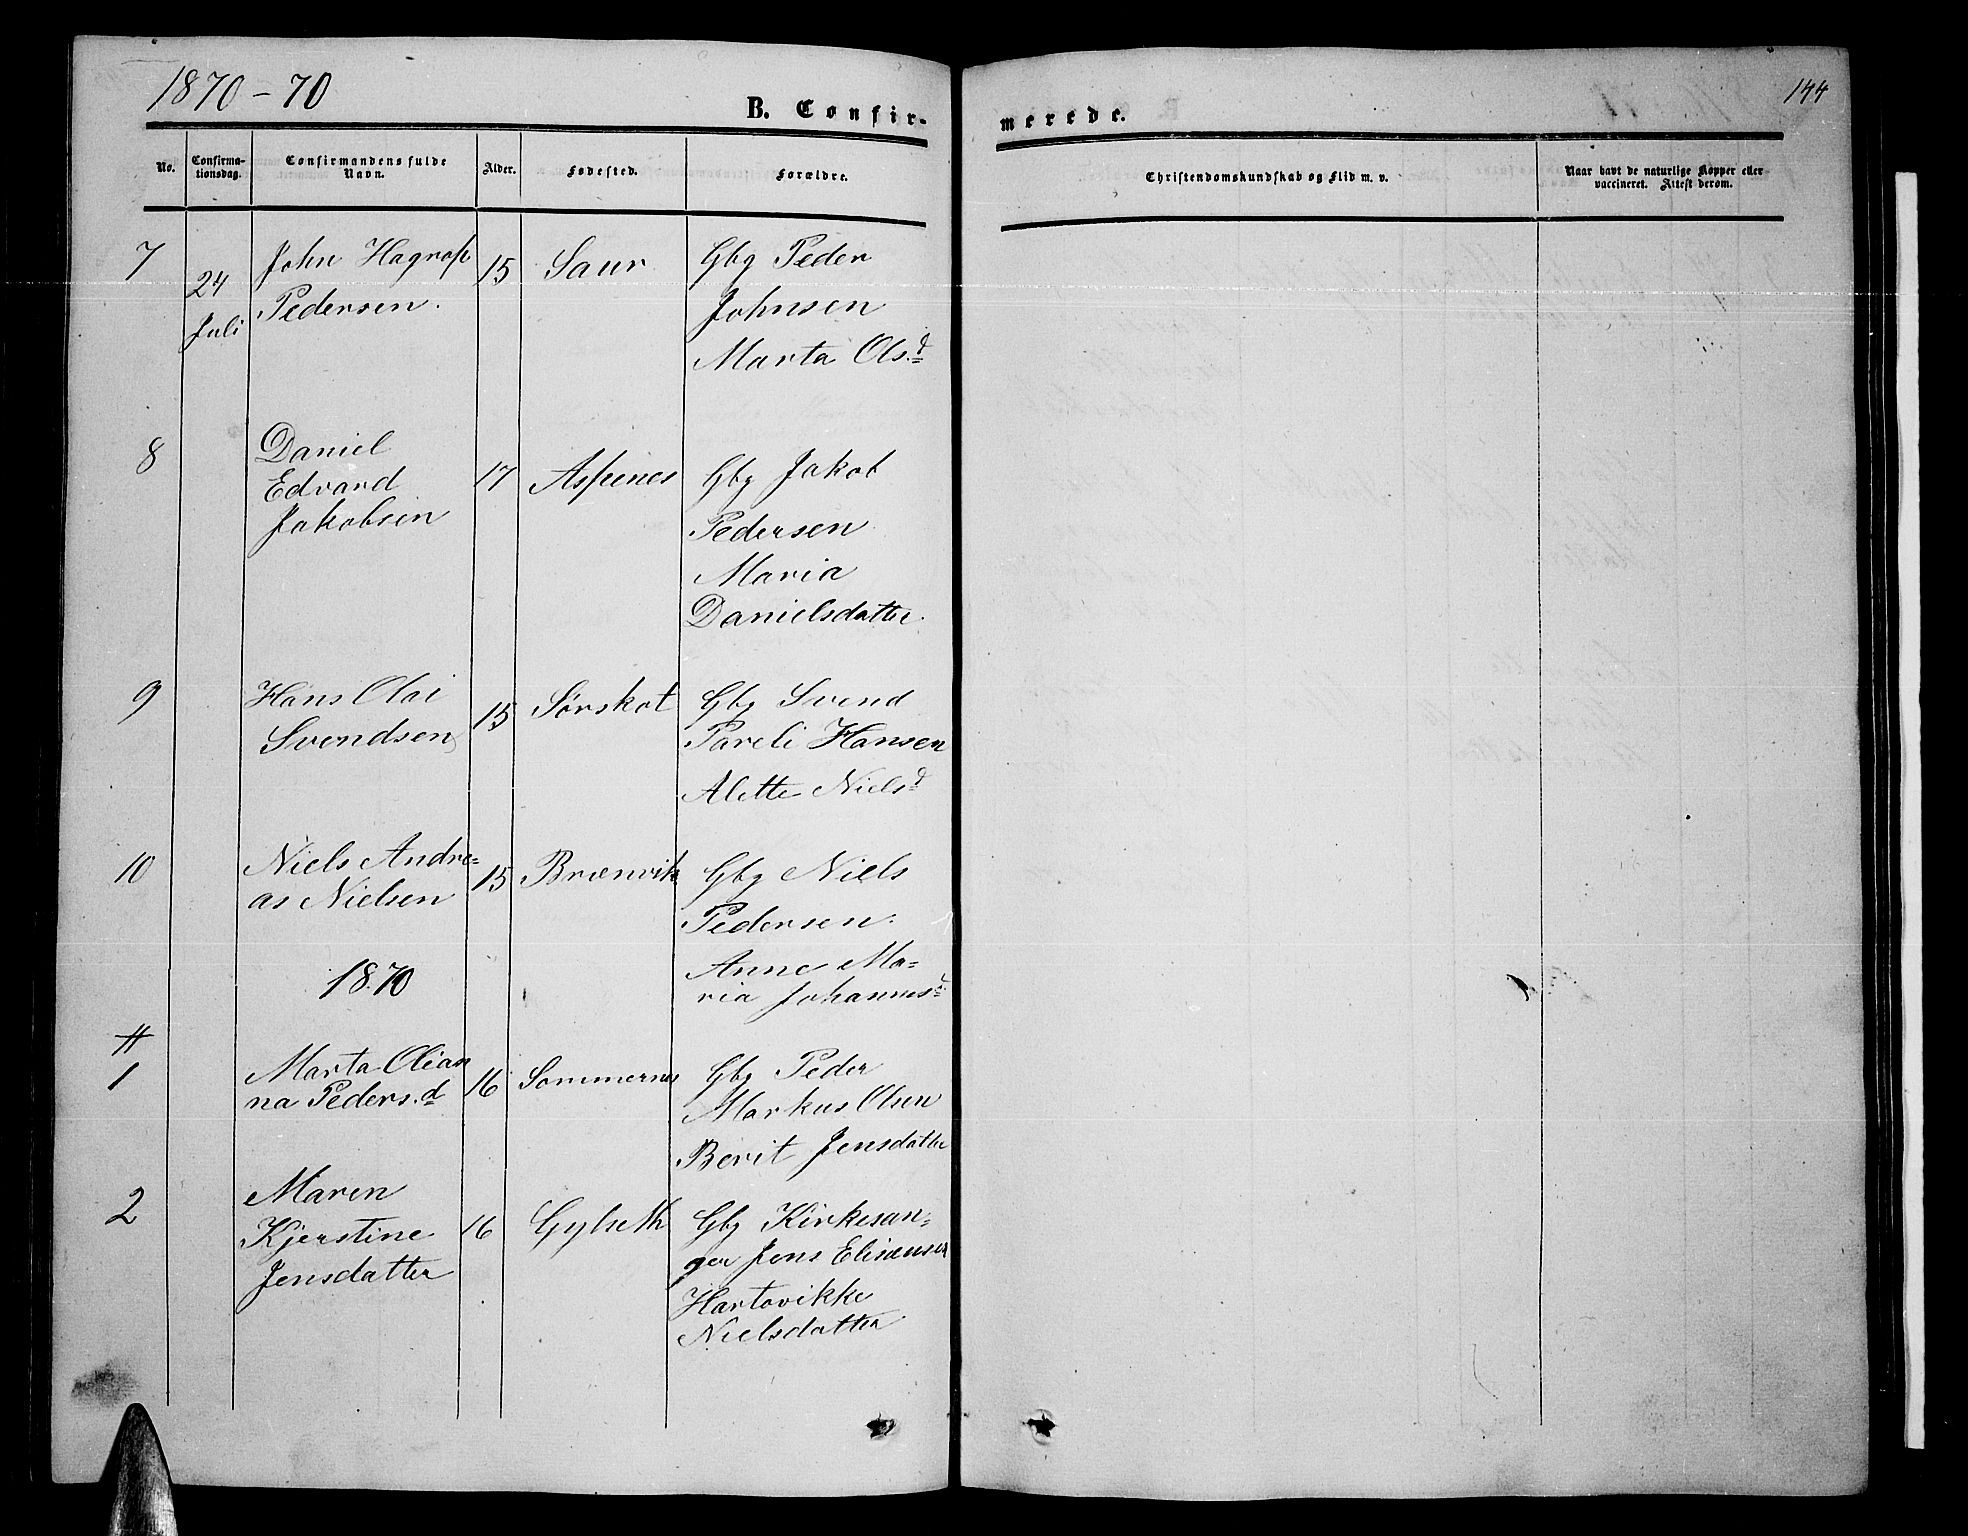 1870-70
B. Confir-
merede.
144
No.
Confirma-
tionsdag.
Confirmandens fulde
Navn.
Alder.
Fødested.
Forældre.
Christendomskundskab og Flid m. v.
Naar havt de naturlige Kopper eller
vaccineret. Attest derom.
7
24
Juli
John Hagrop
Pedersen.
15
Saur
Gbg Peder
Johnsen
Marta Ols.d
8
Daniel
Edvard
Jakobsen
17
Aspenes
Gbg Jakob
Pedersen
Maria
Danielsdatter.
9
Hans Olai
Svendsen
15
Sørskot
Gbg Svend
Pareli Hansen
Alette Nielsd
10
Niels Andre=
as Nielsen
15
Brænvik
Gbg Niels
Pedersen.
Anne Ma=
ria Johannesd.
1870
1
Marta Olian
na Peders.d
16
Sommernes
Gbg Peder
Markus Olsen
Berit Jensdatter
2
Maren
Kjerstine
Jensdatter
16
Gylseth
Gbg Kirkesan=
ger Jens Elisæusen
Hartovikke
Nielsdatter